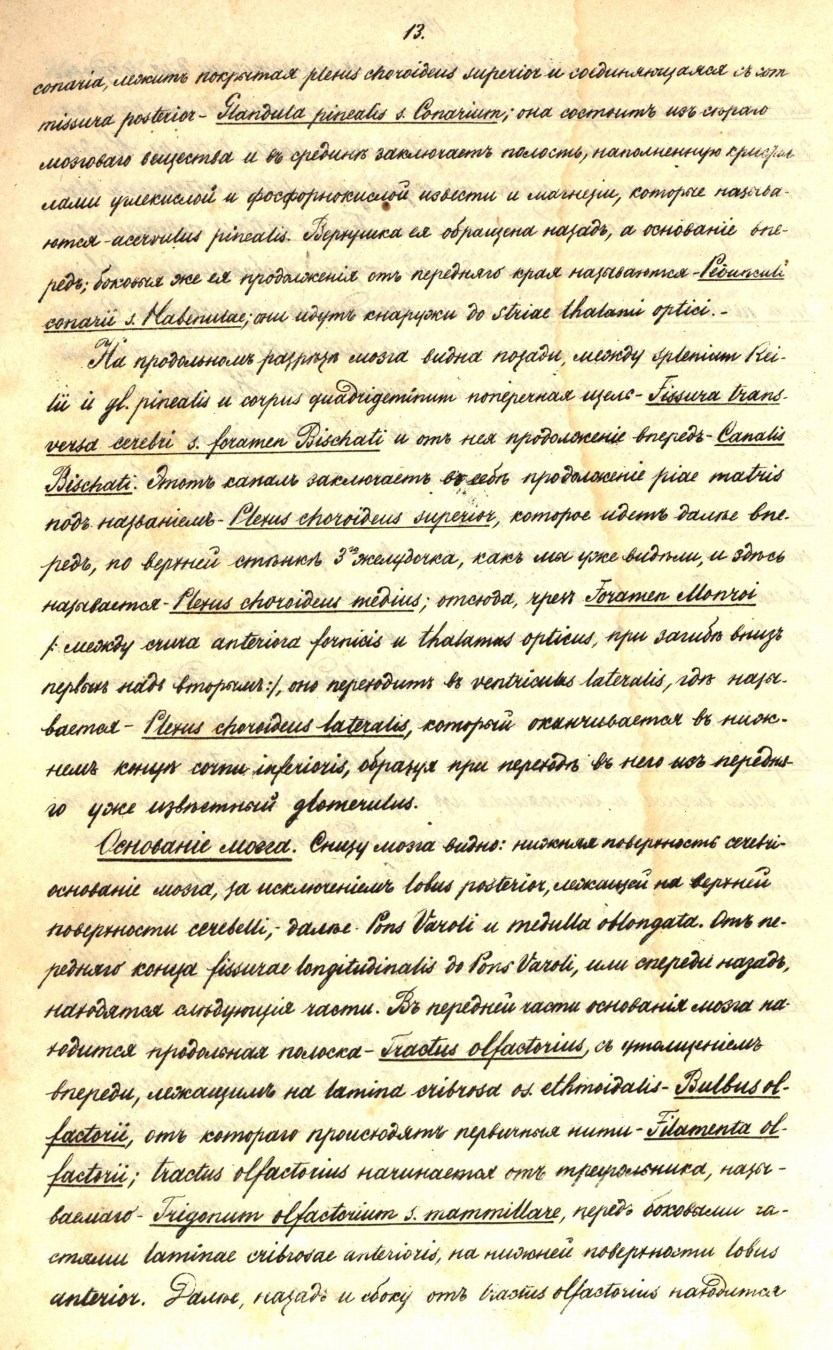 13.
conaria, лежитъ покрытая plexus choroideus superior и соединяющаяся съ com
missura posterior- Glandula pinealis s. Conarium; она состоитъ изъ сѣраго
мозговаго вещества и въ срединѣ заключаетъ полость, наполненную кристал
лами углекислой и фосфорнокислой извести и магнезіи, которые называ-
ются-acervulus pinealis. Верхушка ея обращена назадъ, а основаніе впе-
редъ; боковыя же ея продолженія отъ передняго края называются-Pedunculi
conarii s. Habenulae; они идутъ кнаружи до striae thalami optici.-
На продольномъ разрѣзѣ мозга видна позади, между splenium Rei-
lii и gl. pinealis и corpus quadrigeminum поперечная щель- Fissura trans-
versa cerebri s. foramen Bischati и отъ нея продолженіе впередъ- Canalis
Bischati. Этотъ каналъ заключаетъ въ себѣ продолженіе piae matris
подъ названіемъ- Plexus choroideus superior, которое идетъ далѣе впе-
редъ, по верхней стѣнкѣ 3го желудочка, какъ мы уже видѣли, и здѣсь
называется- Plexus choroideus medius; отсюда, чрезъ Foramen Monroi
/: между crura anteriora fornicis и thalamus opticus, при загибѣ внизъ
первыхъ надъ вторымъ:/, оно переходитъ въ ventriculus lateralis, гдѣ назы-
вается- Plexus choroideus lateralis, который оканчивается въ ниж-
немъ концѣ cornu inferioris, образуя при переходѣ въ него изъ передня-
го уже извѣстный glomerulus.
Основаніе мозга. Снизу мозга видно: нижняя поверхность cerebri-
основаніе мозга, за исключеніемъ lobus posterior, лежащей на верхней
поверхности cerebelli,- далѣе Pons Varoli и medulla oblongata. Отъ пе-
редняго конца fissurae longitudinalis до Pons Varoli, или спереди назадъ,
находятся слѣдующія части. Въ передней части основанія мозга на-
ходится продольная полоска- Tractus olfactorius, съ утолщеніемъ
впереди, лежащимъ на lamina cribrosa os. ethmoidalis- Bulbus ol-
factorii, отъ котораго происходятъ первичныя нити- Filamenta ol-
factorii; tractus olfactorius начинается отъ треугольника, назы-
ваемаго- Trigonum olfactorium s. mammillare, передъ боковыми ча-
стями laminae cribrosae anterioris, на нижней поверхности lobus
anterior. Далѣе, назадъ и сбоку отъ tractus olfactorius находится